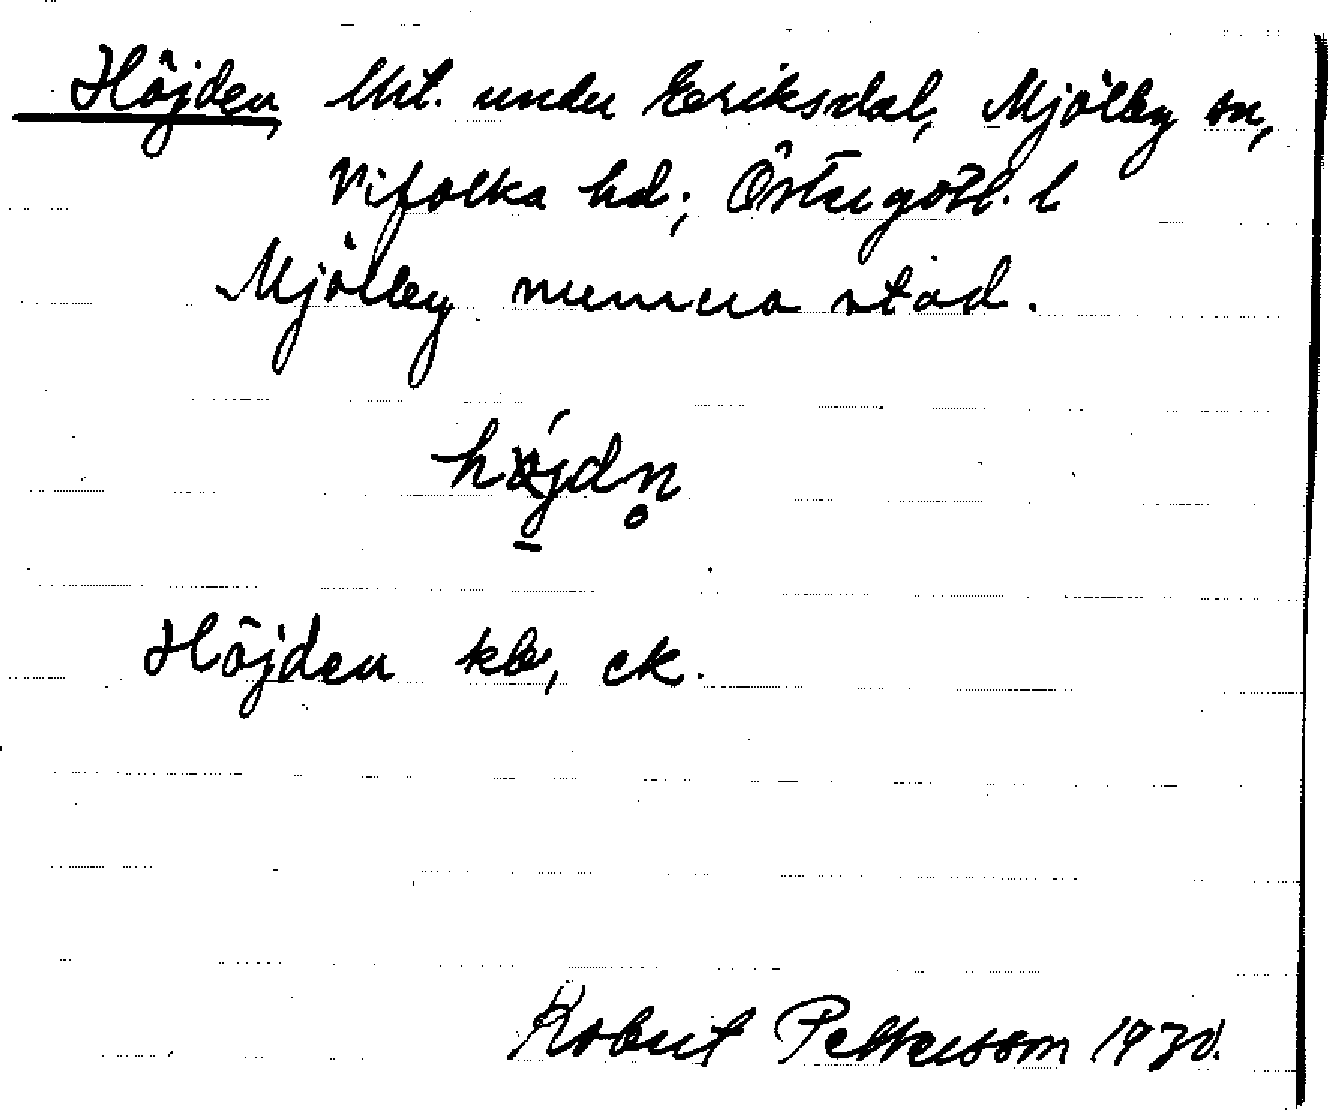 Höjden, lht. under Eriksdal, Mjölby sn,
Vifolka hd; Östergötl. l
Mjölby numera stad.
Höjden kb, ek.
Robert Pettersson 1930.